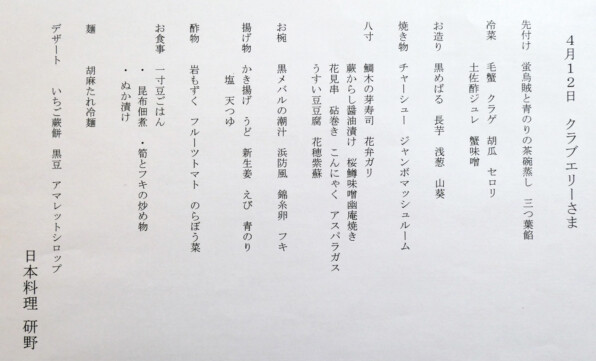 4月12日　クラブエリーさま
先付け　蛍烏賊と青のりの茶碗蒸し　三つ葉餡
冷菜　毛蟹　クラゲ　胡瓜　セロリ
土佐酢ジュレ　蟹味噌
お造り　黒めばる　長芋　浅葱　山葵
焼き物　チャーシュー　ジャンボマッシュルーム
八寸　鯛木の芽寿司　花弁ガリ
蕨からし醤油漬け　桜鱒味噌幽庵焼き
花見串　砧巻き　こんにゃく　アスパラガス
うすい豆豆腐　花穂紫蘇
お椀　黒メバルの潮汁　浜防風　錦糸卵　フキ
揚げ物　かき揚げ　うど　新生姜　えび　青のり
塩　天つゆ
酢物　岩もずく　フルーツトマト　のらぼう菜
お食事　一寸豆ごはん
・昆布佃煮　・筍とフキの炒め物
・ぬか漬け
麺　胡麻たれ冷麺
デザート　いちご蕨餅　黒豆　アマレットシロップ
日本料理　研野